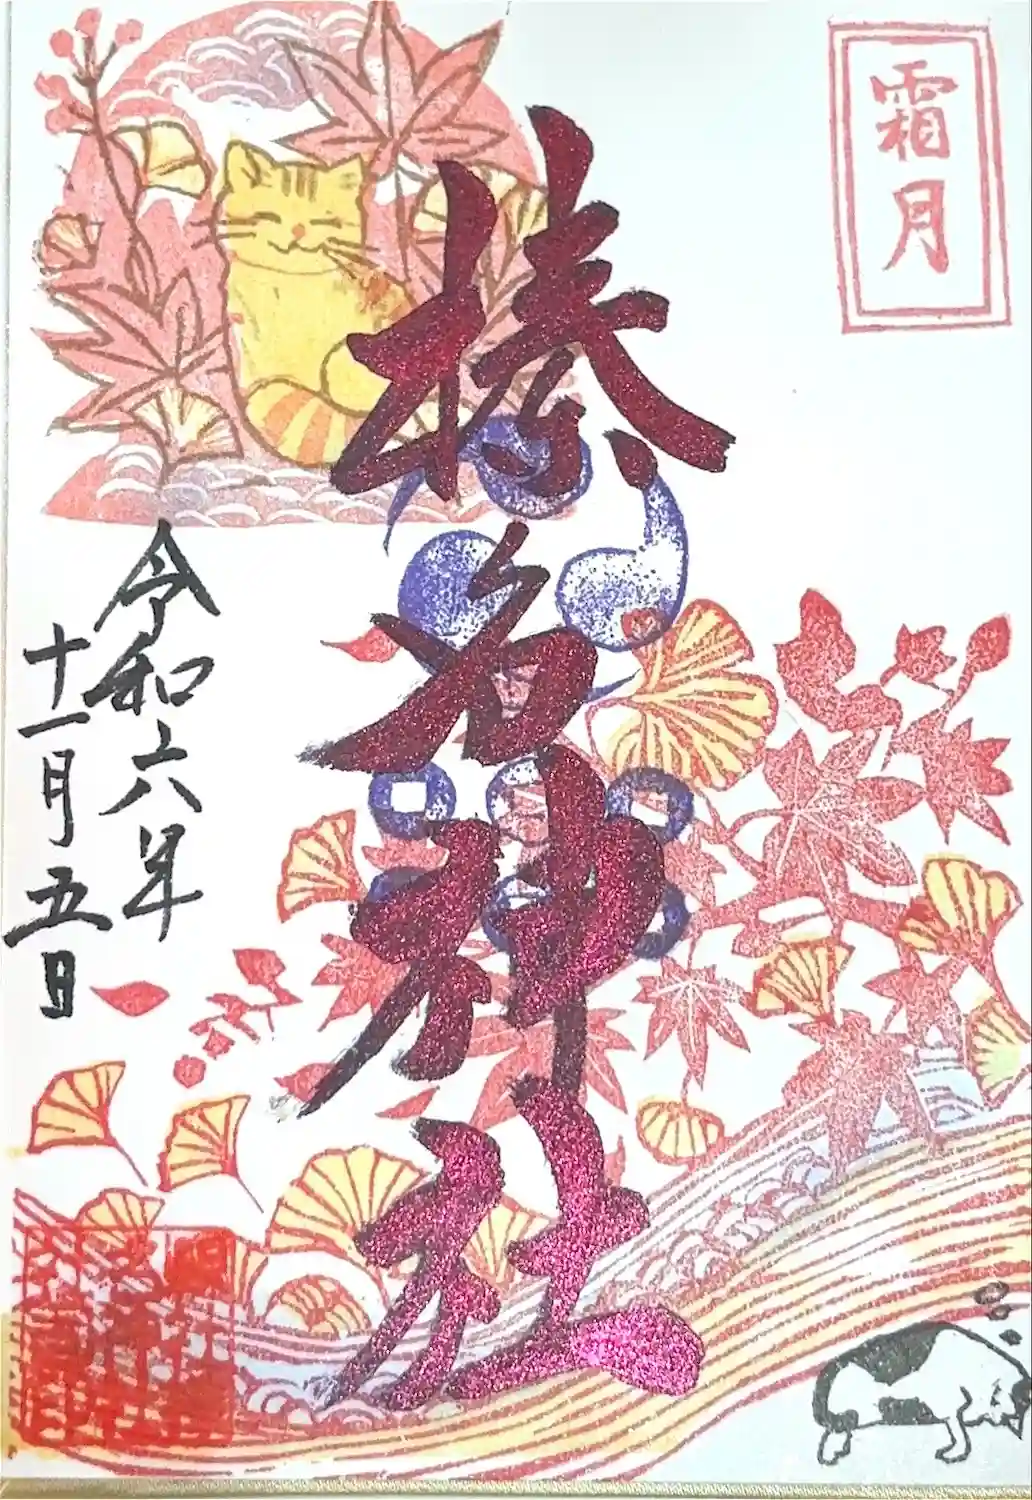 霜月
椿名神社
令和六年
十一月五日